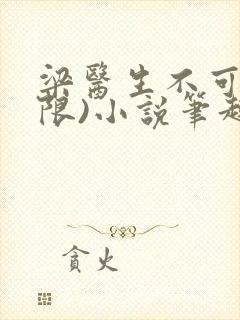 梁醫生不可
限)小說筆趣
貪火